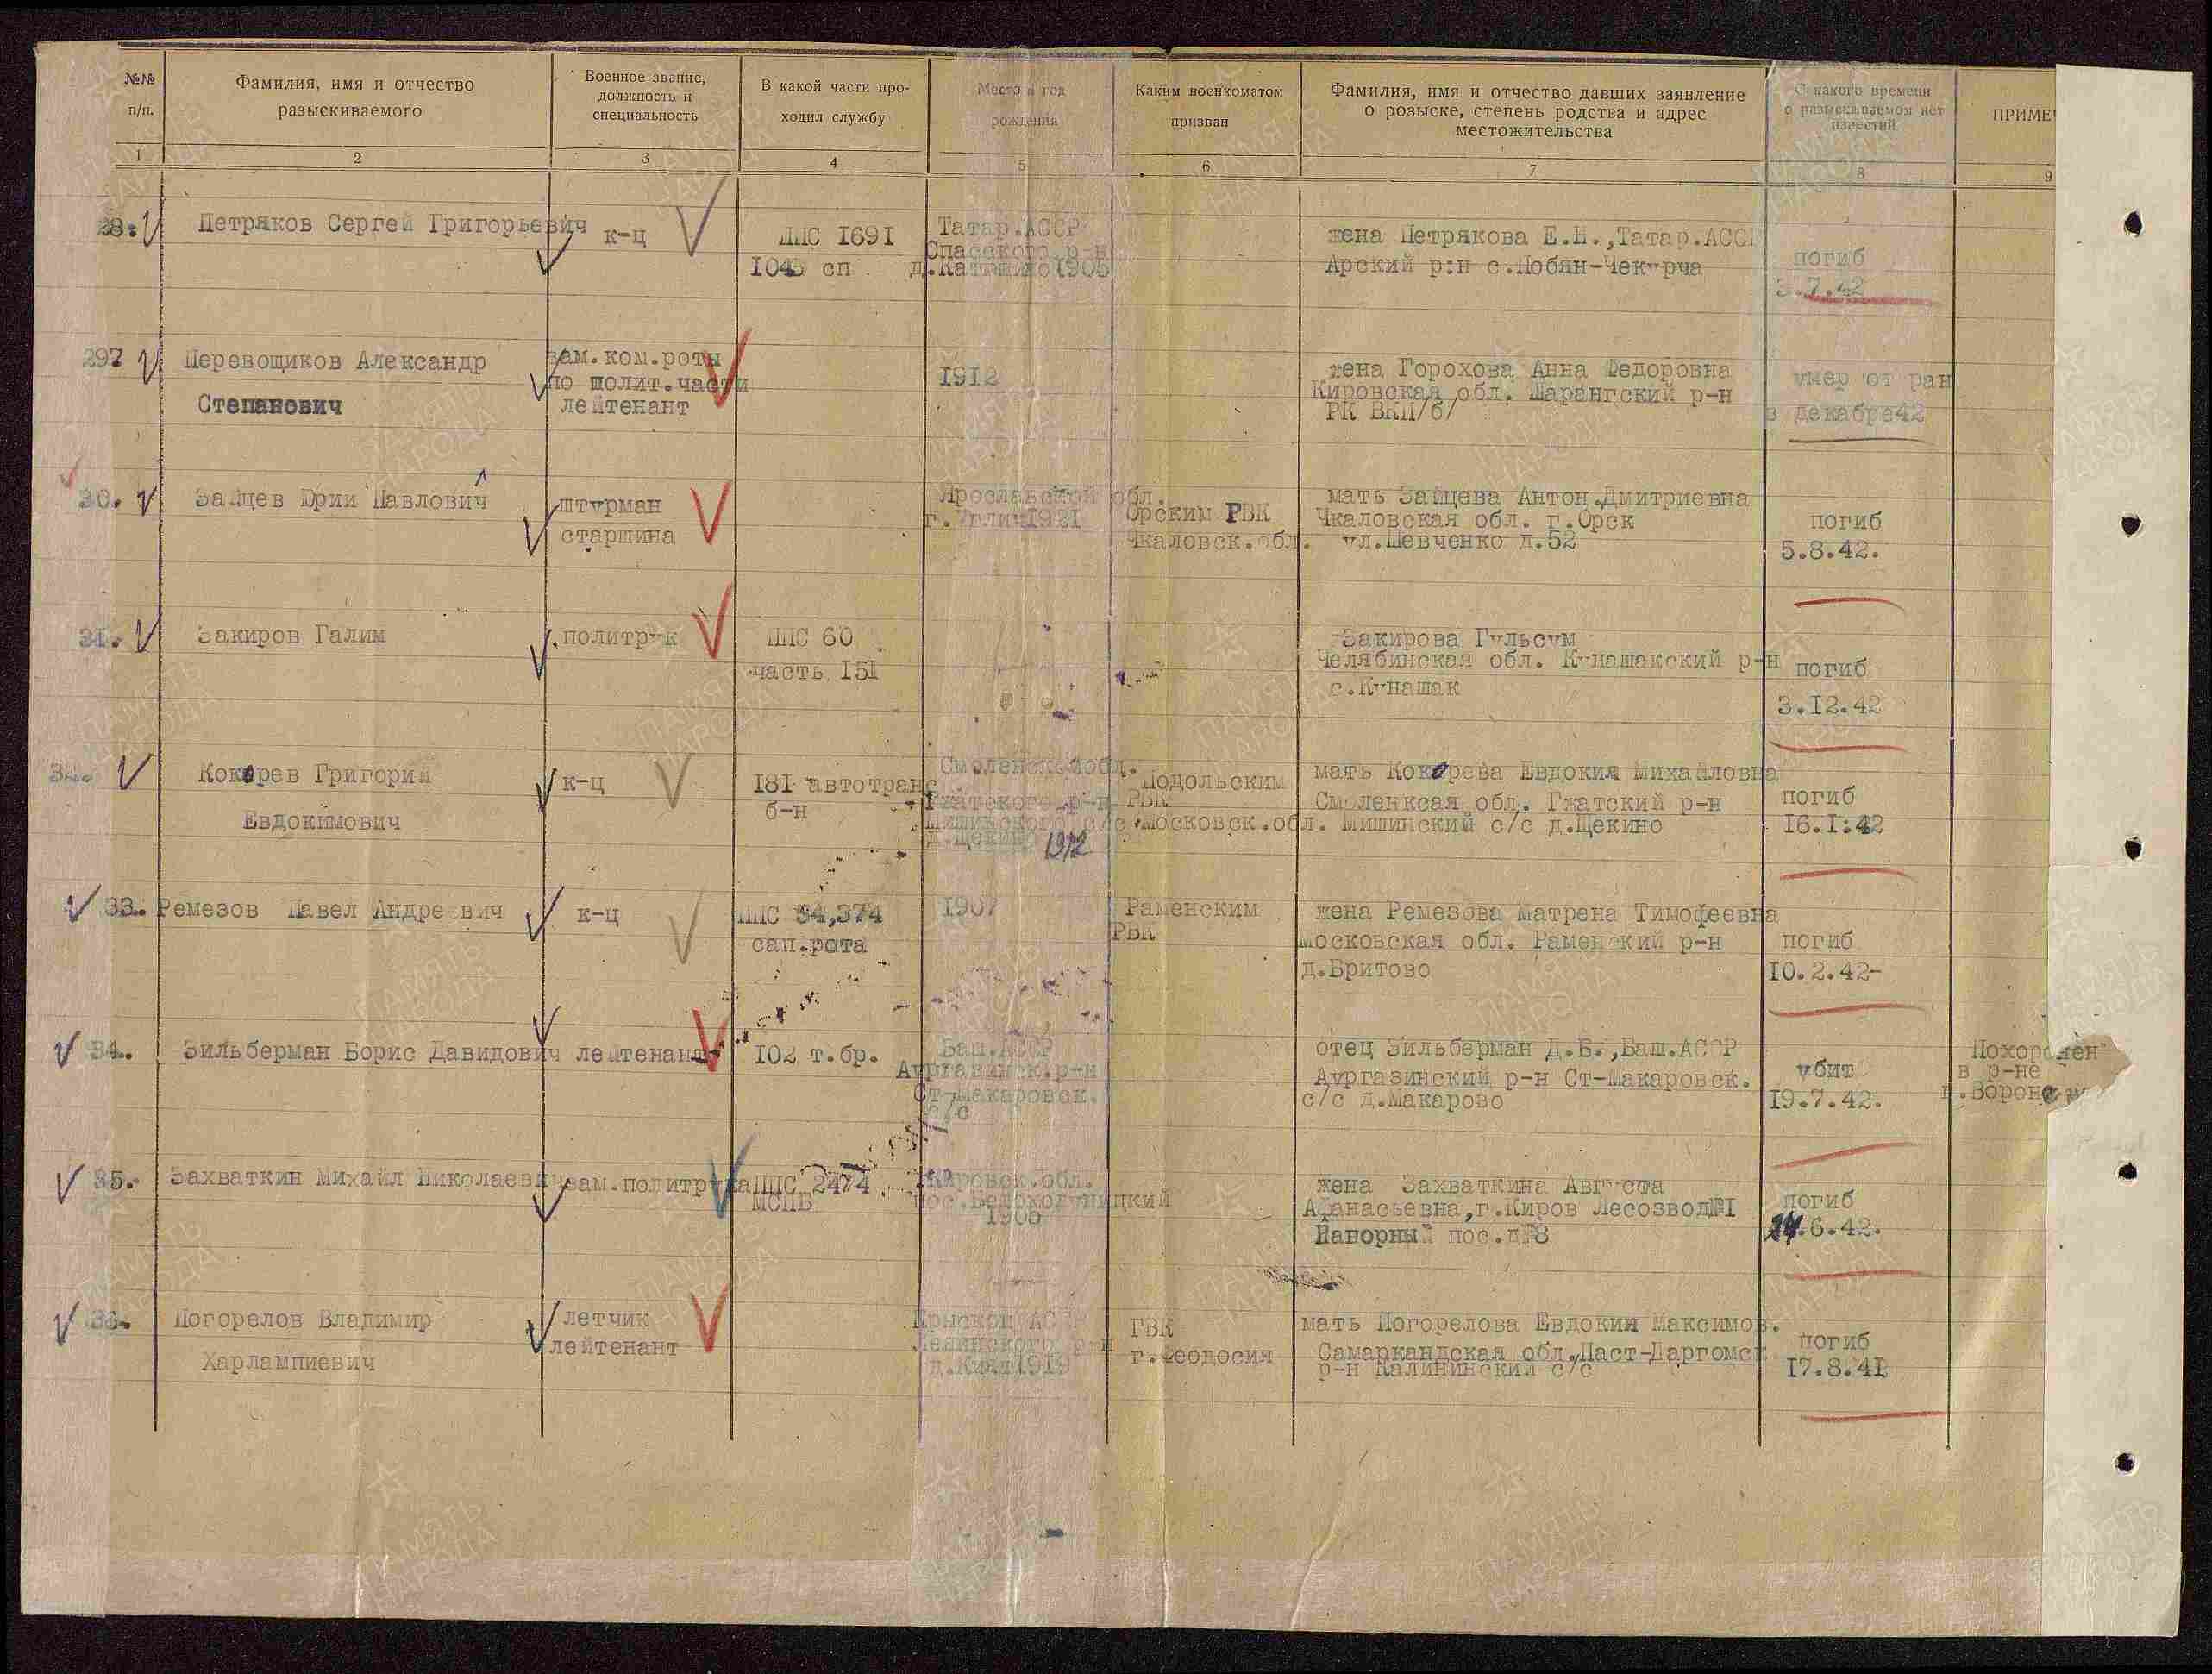 №№ п/п.
Фамилия, имя и отчество разыскиваемого
Военное звание, должность и специальность
В какой части проходил службу
Место и год рождения
Каким военкоматом призван
Фамилия, имя и отчество давших заявление о розыске, степень родства и адрес местожительства
С какого времени о разыскиваемом нет известий
ПРИМЕ
1 2 3 4 5 6 7 8 9
28. Петряков Сергей Григорьевич
к-ц
ППС 1691
1045 сп
Татар.АССР
Спасского р-н
жена Петрякова Е.П.,Татар.АССР
Арский р:н с.Лобян-Чекурча
погиб
3.7.42
297 Перевощиков Александр
Степанович
зам.ком.роты
по полит.части
лейтенант
1912
жена Горохова Анна Федоровна
Кировская обл. Шарангский р-н
РК ВКП/б/
умер от ран
в декабре42
30. Зайцев Юрии Павлович
штурман
старшина
Ярославской обл.
г.Углич1921
Орским РВК
Чкаловск.обл.
мать Зайцева Антон.Дмитриевна
Чкаловская обл. г.Орск
ул.Шевченко д.52
погиб
5.8.42.
31. Закиров Галим
политрук
ППС 60
часть 151
Закирова Гульсум
Челябинская обл. Кунашакский р-н
с.Кунашак
погиб
3.12.42
32. Кокорев Григорий
Евдокимович
к-ц
181 автотранс
б-н
Смоленской обл.
Гжатского р-н
Мишинского с/с
д.Щекино 1912
Подольским
РВК
Московск.обл.
мать Кокорева Евдокия Михайловна
Смоленксая обл. Гжатский р-н
Мишинский с/с д.Щекино
погиб
16.1:42
33. Ремезов Павел Андреевич
к-ц
ППС 34,374
сап.рота
1907
Раменским
РВК
жена Ремезова Матрена Тимофеевна
московская обл. Раменский р-н
д.Бритово
погиб
10.2.42-
34. Зильберман Борис Давидович
лейтенант
102 т.бр.
Баш.АССР
Аургазинск.р-н
Ст-Макаровск.
с/с
отец Зильберман Д.Б.,Баш.АССР
Аургазинский р-н Ст-Макаровск.
с/с д.Макарово
убит
19.7.42.
Похоронен
в р-не
г.Ворон
35. Захваткин Михаил Николаевич
зам.политрука
ППС 2474
МСПБ
Кировск.обл.
пос.Белохолуницкий
жена Захваткина Августа
Афанасьевна,г.Киров Лесозвод№1
Напорный пос.д№8
погиб
24.6.42.
36. Погорелов Владимир
Харлампиевич
летчик
лейтенант
Крыской АССР
Ленинского р-н
д.Кият1919
ГВК
г.Феодосия
мать Погорелова Евдокия Максимов.
Самаркандская обл.,Паст-Даргомск
р-н Калининский с/с
погиб
17.8.41
ПАМЯТЬ НАРОДА